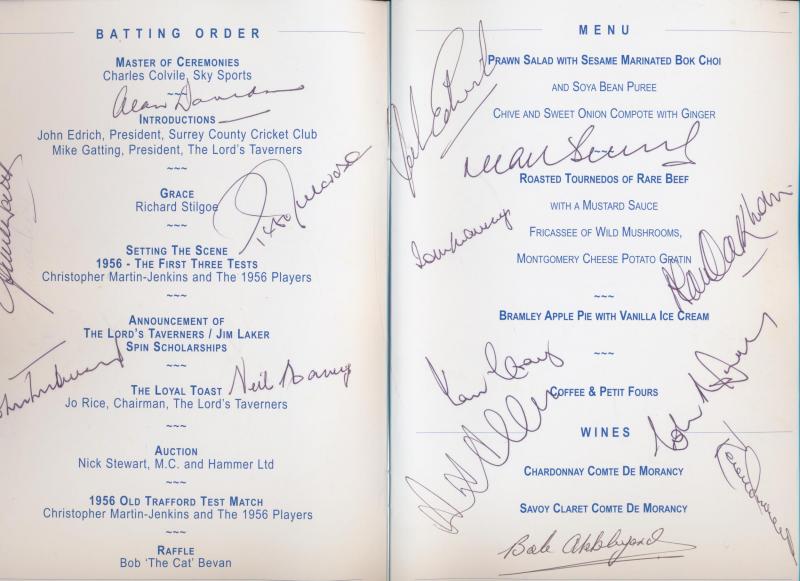 BATTING ORDER
MASTER OF CEREMONIES
Charles Colvile, Sky Sports
~~~
Alan Davidson
INTRODUCTIONS
John Edrich, President, Surrey County Cricket Club
Mike Gatting, President, The Lord's Taverners
~~~
GRACE
Richard Stilgoe
~~~
SETTING THE SCENE
1956 - THE FIRST THREE TESTS
Christopher Martin-Jenkins and The 1956 Players
~~~
ANNOUNCEMENT OF
THE LORD'S TAVERNERS / JIM LAKER
SPIN SCHOLARSHIPS
~~~
THE LOYAL TOAST
Neil Harvey
Jo Rice, Chairman, The Lord's Taverners
~~~
AUCTION
Nick Stewart, M.C. and Hammer Ltd
~~~
1956 OLD TRAFFORD TEST MATCH
Christopher Martin-Jenkins and The 1956 Players
~~~
RAFFLE
Bob 'The Cat' Bevan
MENU
PRAWN SALAD WITH SESAME MARINATED BOK CHOI
AND SOYA BEAN PUREE
CHIVE AND SWEET ONION COMPOTE WITH GINGER
~~~
ROASTED TOURNEDOS OF RARE BEEF
WITH A MUSTARD SAUCE
FRICASSEE OF WILD MUSHROOMS,
MONTGOMERY CHEESE POTATO GRATIN
~~~
BRAMLEY APPLE PIE WITH VANILLA ICE CREAM
~~~
COFFEE & PETIT FOURS
WINES
CHARDONNAY COMTE DE MORANCY
SAVOY CLARET COMTE DE MORANCY
Bob Appleyard